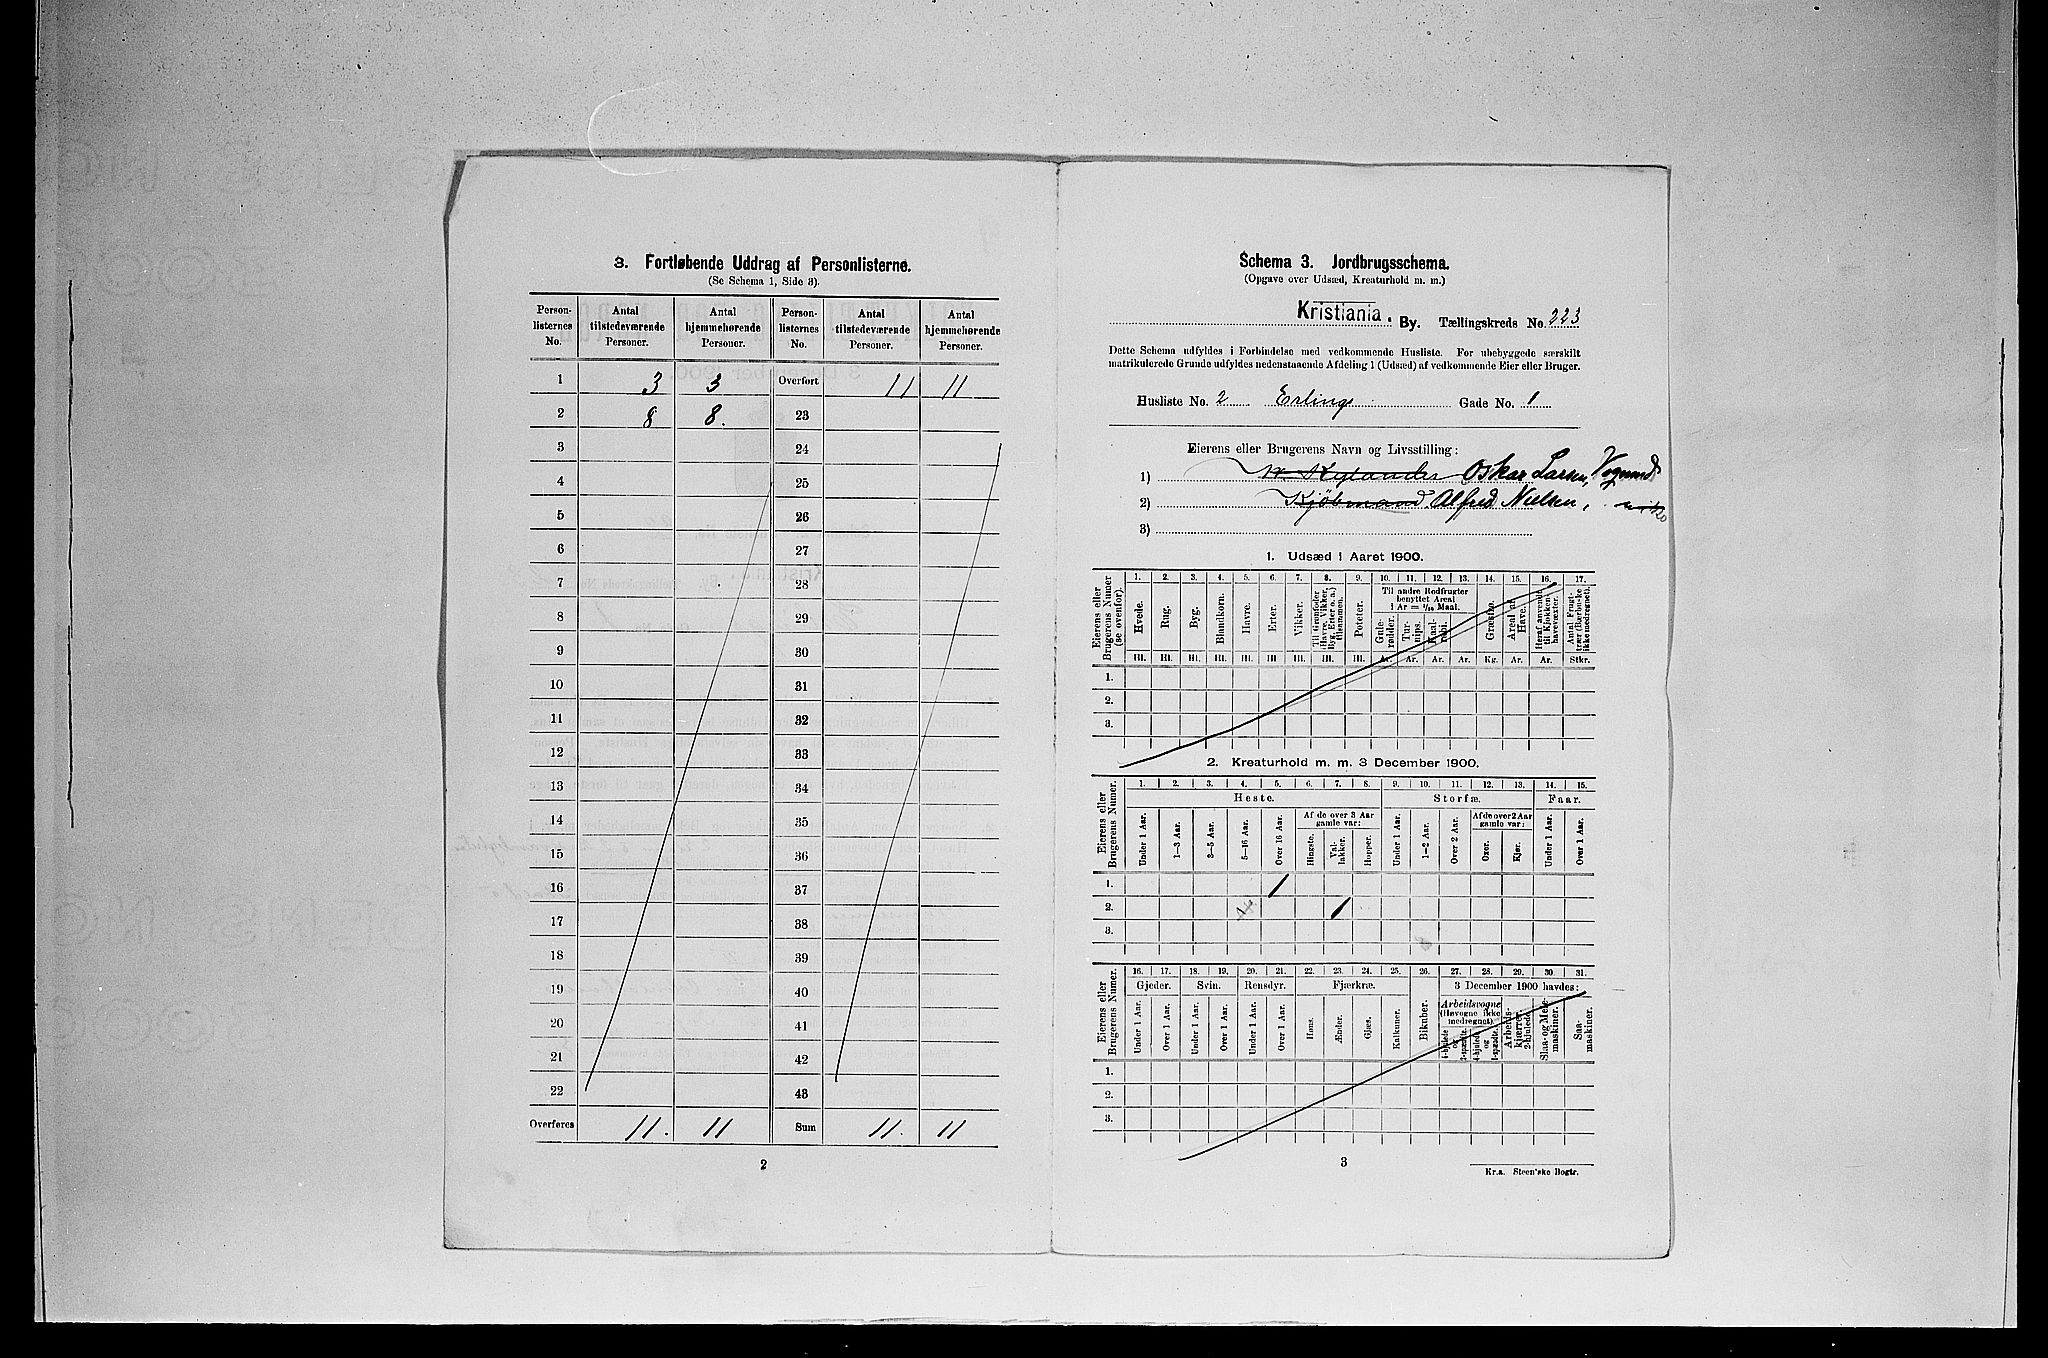 3. Fortløbende Uddrag af Personlisterne.
(Se Schema 1, Side 3).
Person-listernes No. | Antal tilstedeværende Personer. | Antal hjemmehørende Personer. | Person-listernes No. | Antal tilstedeværende Personer. | Antal hjemmehørende Personer.
1 | 3 | 3 | Overført | 11 | 11
2 | 8 | 8. | 23
3 | 24
4 | 25
5 | 26
6 | 27
7 | 28
8 | 29
9 | 30
10 | 31
11 | 32
12 | 33
13 | 34
14 | 35
15 | 36
16 | 37
17 | 38
18 | 39
19 | 40
20 | 41
21 | 42
22 | 43
Overføres | 11. | 11 | Sum | 11. | 11
2
Schema 3. Jordbrugsschema.
(Opgave over Udsæd, Kreaturhold m. m.)
Kristiania. By. Tællingskreds No. 223
Dette Schema udfyldes i Forbindelse med vedkommende Husliste. For ubebyggede særskilt
matrikulerede Grunde udfyldes nedenstaaende Afdeling 1 (Udsæd) af vedkommende Eier eller Bruger.
Husliste No. 2 Erlings Gade No. 1
Eierens eller Brugerens Navn og Livsstilling:
1) Oskar Larsen, Vognmd
2) Kjöbmand Alfred Nielsen,
3)
1. Udsæd i Aaret 1900.
Eierens eller Brugerens Numer (se ovenfor).
1. | 2. | 3. | 4. | 5. | 6. | 7. | 8. | 9. | 10. | 11. | 12. | 13. | 14. | 15. | 16. | 17.
Til andre Rodfrugter benyttet Areal 1 Ar = 1/10 Maal.
Hvede. | Rug. | Byg. | Blandkorn. | Havre. | Erter. | Vikker. | Til Grønfoder (Havre, Vikker, Byg, Erter o. a.) tilsammen. | Poteter. | Gule-rødder. | Tur-nips. | Kaal-rabi. | Græsfrø. | Areal af Have. | Heraf anvendt til Kjøkken-havevæxter. | Antal Frugt-trær (Bærbuske ikke medregnet).
Hl. | Hl. | Hl. | Hl. | Hl. | Hl. | Hl. | Hl. | Hl. | Ar. | Ar. | Ar. | Ar. | Kg. | Ar. | Ar. | Stkr.
1.
2.
3.
2. Kreaturhold m. m. 3 December 1900.
Eierens eller Brugerens Numer.
1. | 2. | 3. | 4. | 5. | 6. | 7. | 8. | 9. | 10. | 11. | 12. | 13. | 14. | 15.
Heste. | Storfæ. | Faar.
Af de over 3 Aar gamle var: | Af de over 2 Aar gamle var:
Under 1 Aar. | 1–3 Aar. | 3–5 Aar. | 5–16 Aar. | Over 16 Aar. | Hingste. | Val-lakker. | Hopper. | Under 1 Aar. | 1–2 Aar. | Over 2 Aar. | Oxer. | Kjør. | Under 1 Aar. | Over 1 Aar.
1. | 1
2. | 1
3.
Eierens eller Brugerens Numer.
16. | 17. | 18. | 19. | 20. | 21. | 22. | 23. | 24. | 25. | 26. | 27. | 28. | 29. | 30. | 31.
Gjeder. | Svin. | Rensdyr. | Fjærkræ. | 3 December 1900 havdes:
Arbeidsvogne (Høvogne ikke medregnet)
Under 1 Aar. | Over 1 Aar. | Under 1 Aar. | Over 1 Aar. | Under 1 Aar. | Over 1 Aar. | Høns. | Ænder. | Gjæs. | Kalkuner. | Bikuber. | 4-hjulede og 2-spændte. | 4-hjulede og 1-spændte. | Arbeids-kjærrer, 2-hjulede. | Slaa- og Meie-maskiner. | Saa-maskiner.
1.
2.
3.
3
Kr.a. Steen'ske Bogtr.